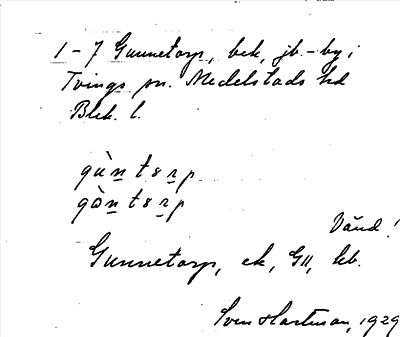 1-7 Gunnetorp, bek, jb.-by i
Tvings sn. Medelstads hd
Blek. l.
gùn̲tɞr̲p
gòn̲tɞr̲p
Vänd!
Gunnetorp, ek, GII, kb.
Sven Hartman, 1929